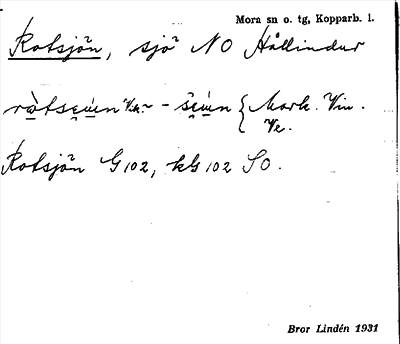 Mora sn o. tg, Kopparb. l.
Rotsjön, sjö NO Hållindur
Mark. Vin.
Ve.
Rotsjön G 102, kG 102 SO.
Bror Lindén 1931